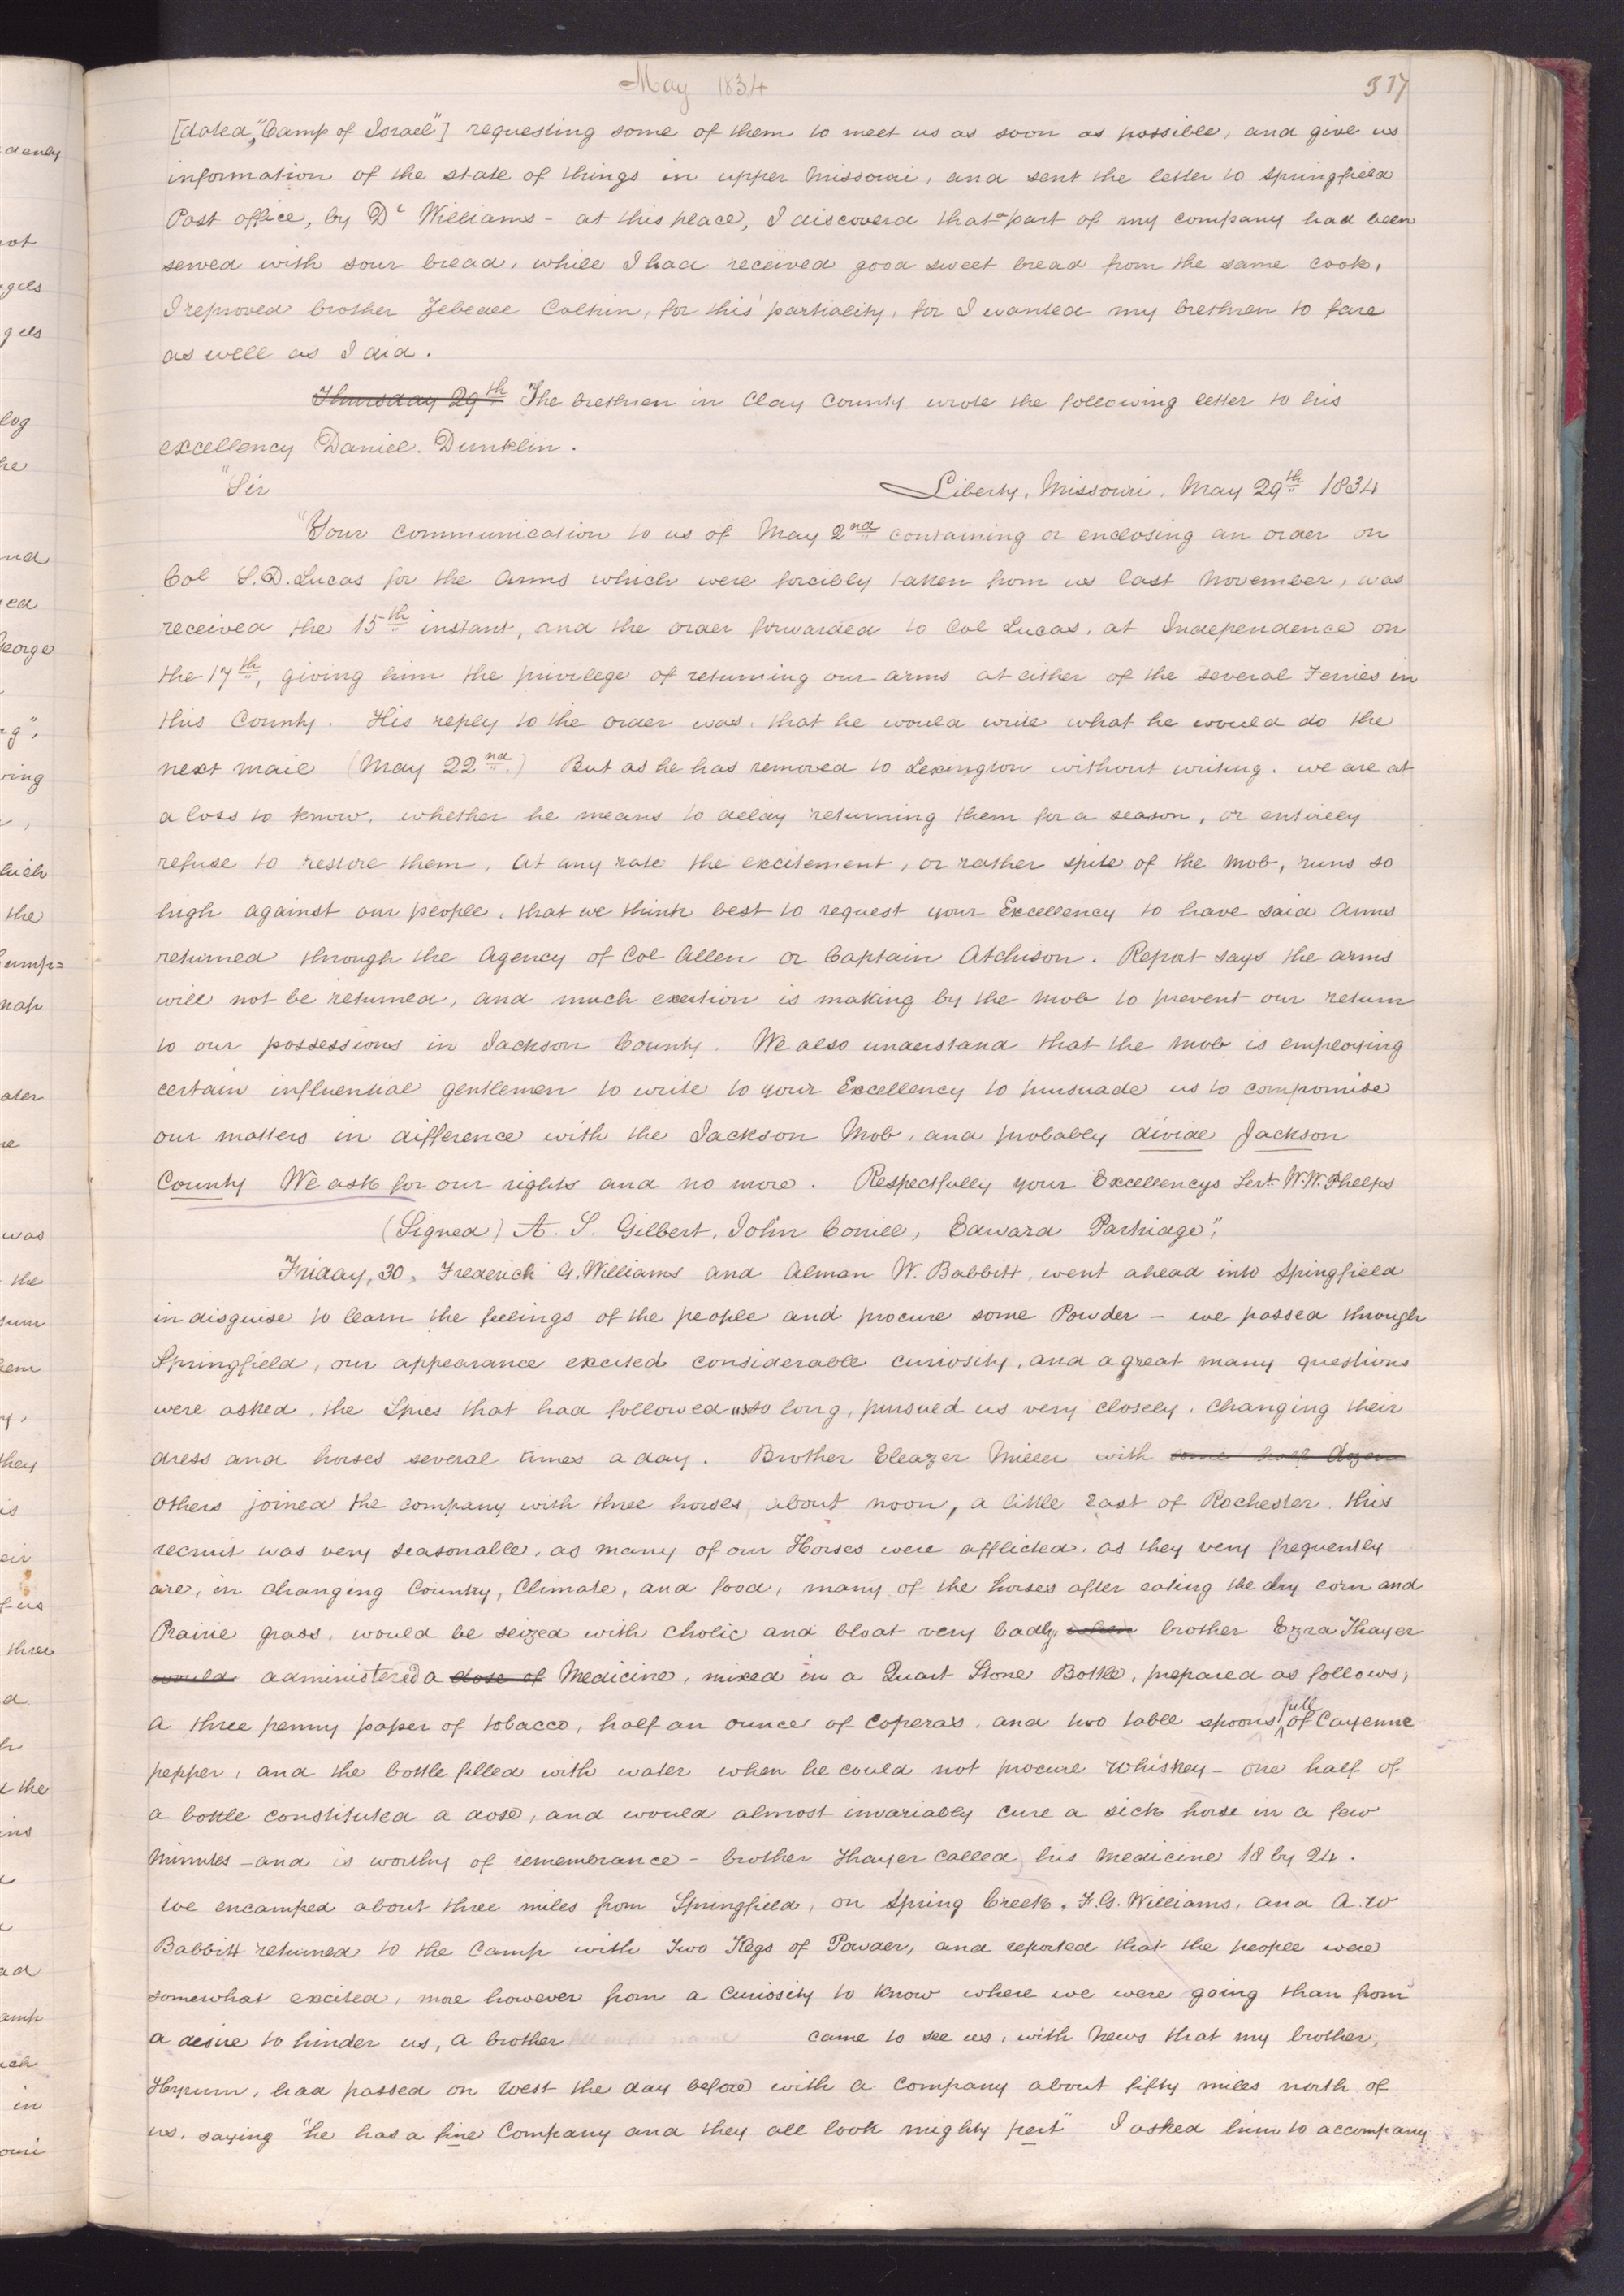 May 1834
517
[dated, "Camp of Israel"] requesting some of them to meet us as soon as possible, and give us
information of the state of things in upper Missouri, and sent the letter to Springfield
Post office, by Dr Williams - at this place, I discoverd that a part of my company had been
served with sour bread, while I had received good sweet bread from the same cook,
I reproved brother Zebedee Coltrin, for this partiality, for I wanted my brethren to fare
as well as I did.
Thursday 29th The brethren in Clay County wrote the following letter to his
excellency Daniel Dunklin.
"Sir Liberty, Missouri, May 29th 1834
"Your communication to us of May 2nd containing or enclosing an order on
Col S. D. Lucas for the Arms which were forcibly taken from us last November, was
received the 15th instant, and the order forwarded to Col Lucas, at Independence on
the 17th, giving him the privilege of returning our arms at either of the several Ferries in
this County. His reply to the order was, that he would write what he would do the
next mail (May 22nd.) But as he has removed to Lexington without writing, we are at
a loss to know, whether he means to delay returning them for a season, or entirely
refuse to restore them, At any rate the excitement, or rather spite of the mob, runs so
high against our people, that we think best to request your Excellency to have said Arms
returned through the Agency of Col Allen or Captain Atchison. Report says the arms
will not be returned, and much exertion is making by the mob to prevent our return
to our possessions in Jackson County. We also understand that the mob is employing
certain influential gentlemen to write to your Excellency to pursuade us to compromise
our matters in difference with the Jackson Mob, and probably divide Jackson
County We ask for our rights and no more. Respectfully your Excellencys Servt. W. W. Phelps
(Signed) A. S. Gilbert, John Corrill, Edward Partridge",
Friday, 30, Frederick G. Williams and Almon W. Babbitt, went ahead into Springfield
in disguise to learn the feelings of the people and procure some Powder - we passed through
Springfield, our appearance excited considerable curiosity, and a great many questions
were asked, the Spies that had followed us so long, pursued us very closely, changing their
dress and horses several times a day. Brother Eleazer Miller with some half dozen
others joined the company with three horses, about noon, a little East of Rochester. this
recruit was very seasonable, as many of our Horses were afflicted, as they very frequently
are, in changing Country, Climate, and food, many of the horses after eating the dry corn and
Prairie grass, would be seized with Cholic and bloat very badly when brother Ezra Thayer
would administered a dose of Medicine, mixed in a Quart Stone Bottle, prepared as follows,
A three penny paper of tobacco, half an ounce of Coperas, and two table spoons full of Cayenne
pepper, and the bottle filled with water when he could not procure Whiskey - one half of
a bottle constituted a dose, and would almost invariably cure a sick horse in a few
minutes - and is worthy of rememberance - brother Thayer called his medicine 18 by 24.
We encamped about three miles from Springfield, on Spring Creek. F. G. Williams, and A. W
Babbitt returned to the Camp with Two Kegs of Powder, and reported that the people were
somewhat excited, more however from a Curiosity to know where we were going than from
a desire to hinder us, A brother came to see us, with News that my brother,
Hyrum, had passed on West the day before with a Company about fifty miles north of
us, saying "he has a fine Company and they all look mighty pert" I asked him to accompany